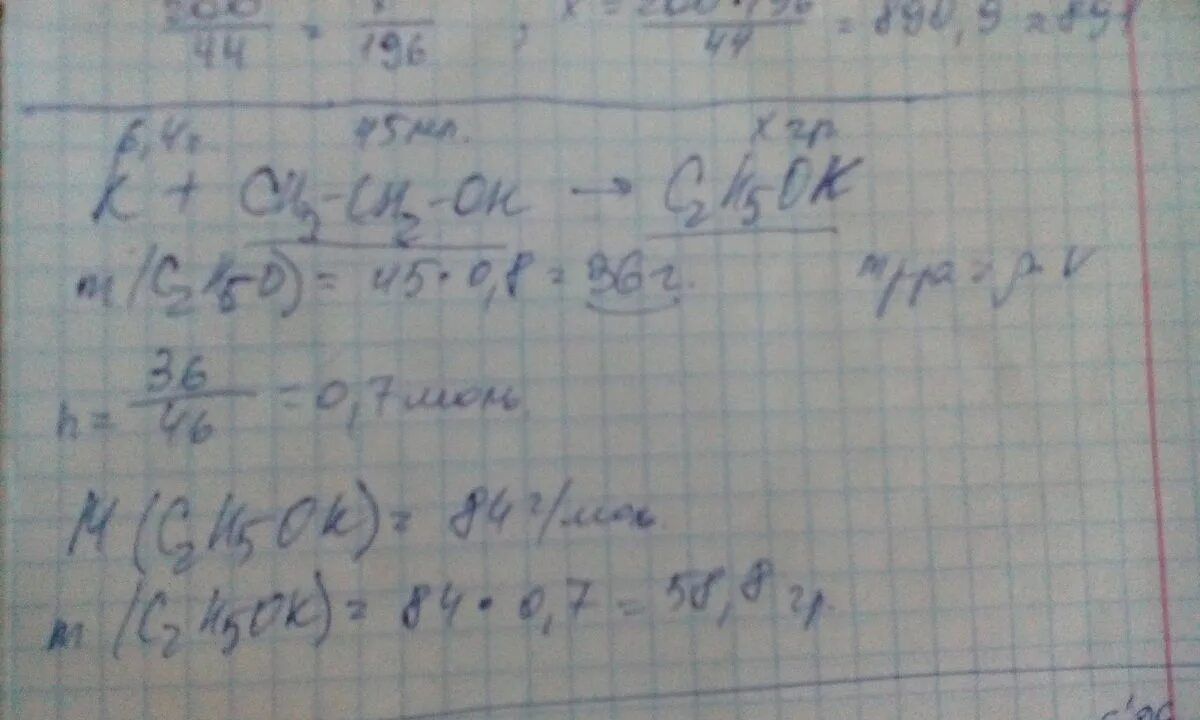 200/44 = x/196 ; x = 200·196/44 = 890,9 ≈ 891
6,4г 45мл. x гр
K + CH3-CH2-OH → C2H5OK
m(C2H5O) = 45·0,8 = 36г. mр-ра = ρ·V
n = 36/46 = 0,7 моль
M(C2H5OK) = 84 г/мол
m(C2H5OK) = 84·0,7 = 58,8 гр.